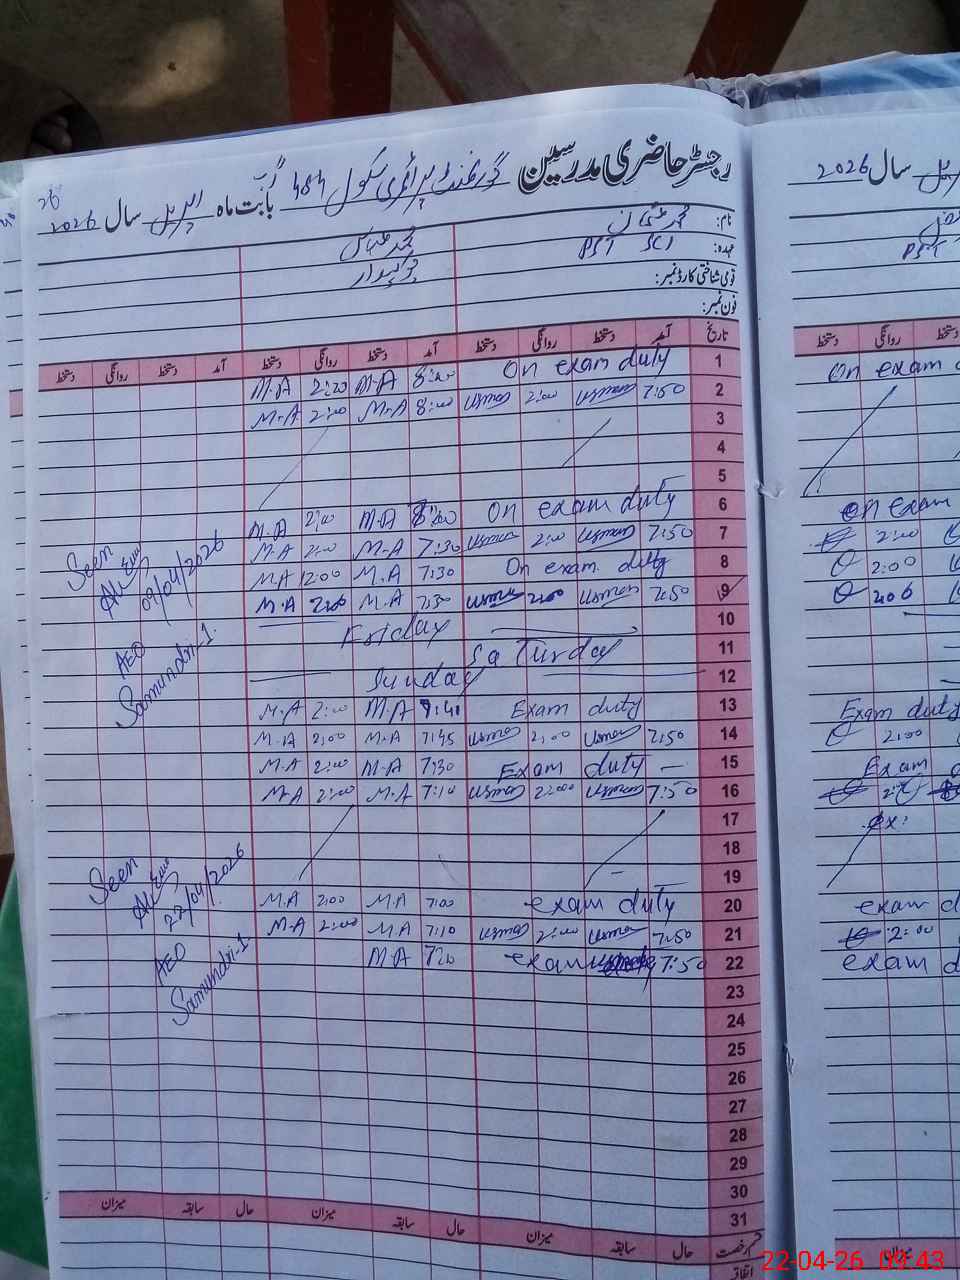 رجسٹر حاضری مدرسین گورنمنٹ پرائمری سکول 484 بابت ماہ اپریل سال 2026
سال 2026
نام: محمد عثمان محمد عباس
عہدہ: PST SCI چوکیدار
قومی شناختی کارڈ نمبر:
فون نمبر:
تاریخ آمد دستخط روانگی دستخط آمد دستخط روانگی دستخط آمد دستخط روانگی دستخط
1 On exam duty 8:00 M.A 2:20 M.A
2 7:50 usman 2:00 usman 8:00 M.A 2:00 M.A
3
4
5
6 On exam duty 8:00 M.A 2:00 M.A
7 7:50 usman 2:00 usman 7:30 M.A 2:00 M.A
8 On exam duty 7:30 M.A 12:00 M.A
9 7:50 usman 2:00 usman 7:30 M.A 2:00 M.A
Seen
09/04/2026
AEO
Samundri-1
10 Friday
11 SaTurday
12 Sunday
13 Exam duty 7:40 M.A 2:00 M.A
14 7:50 usman 2:00 usman 7:45 M.A 2:00 M.A
15 Exam duty 7:30 M.A 2:00 M.A
16 7:50 usman 2:00 usman 7:10 M.A 2:00 M.A
17
18
19
20 exam duty 7:00 M.A 2:00 M.A
21 7:50 usman 2:00 usman 7:10 M.A 2:00 M.A
22 exam 7:50 720 M.A
Seen
22/04/2026
AEO
Samundri-1
23
24
25
26
27
28
29
30
31
قسم رخصت حال سابقہ میزان حال سابقہ میزان حال سابقہ میزان
اتفاقیہ
دستخط روانگی دستخط
On exam
On exam
2:00
2:00
200
Exam duty
2:00
Exam
ex:
exam d
2:00
exam d
میزان
22-04-26 09:43